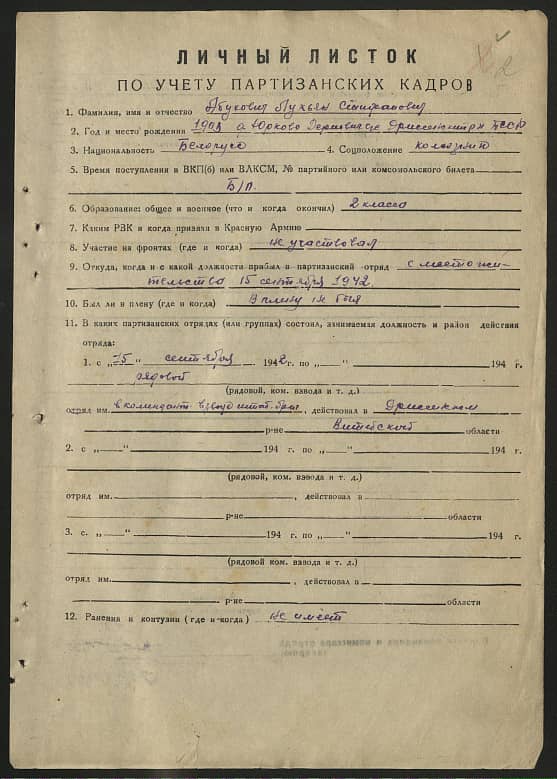 2
ЛИЧНЫЙ ЛИСТОК
ПО УЧЕТУ ПАРТИЗАНСКИХ КАДРОВ
1. Фамилия, имя и отчество Лукьян
2. Год и место рождения БССР
3. Национальность Белорус 4. Соцположение
5. Время поступления в ВКП(б) или ВЛКСМ, № партийного или комсомольского билета
Б/П.
6. Образование: общее и военное (что и когда окончил) 2 класса
7. Каким РВК и когда призван в Красную Армию
8. Участие на фронтах (где и когда) не участвовал
9. Откуда, когда и с какой должности прибыл в партизанский отряд с место жи-
тельства 15 сентября 1942.
10. Был ли в плену (где и когда) В плену не был
11. В каких партизанских отрядах (или группах) состоял, занимаемая должность и район действия
отряда:
1. с „15 “ сентября 1942 г. по „ “ 194 г.
рядовой
(рядовой, ком. взвода и т. д.)
отряд им. в комендант. взвод штаб. бриг , действовал в Дриссенском
р-не Витебской области
2. с „ “ 194 г. по „ “ 194 г.
(рядовой, ком. взвода и т. д.)
отряд им. , действовал в
р-не области
3. с. „ “ 194 г. по „ “ 194 г.
(рядовой, ком. взвода и т. д.)
отряд им. , действовал в
р-не области
12. Ранения и контузии (где и когда) Не имеет